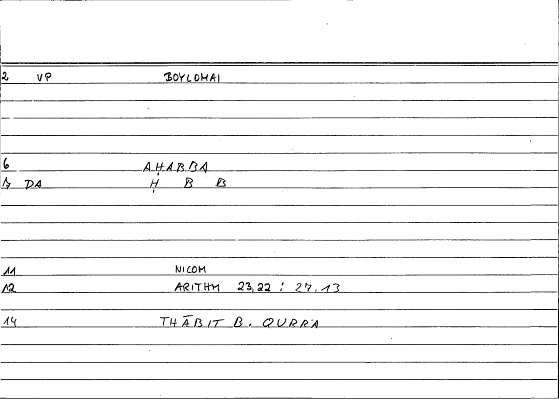 2 VP BOYLOMAI
6 AḤABBA
7 DA Ḥ B B
11 NICOM
12 ARITHM 23,22 : 27.13
14 THĀBIT B. QURRA